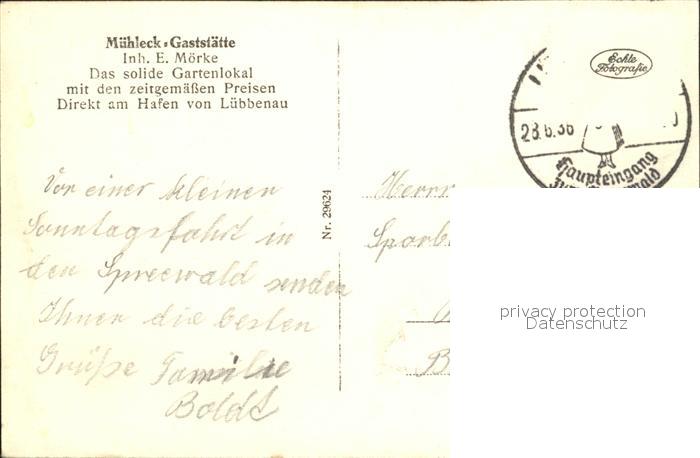 Mühleck-Gaststätte
Inh. E. Mörke
Das solide Gartenlokal
mit den zeitgemäßen Preisen
Direkt am Hafen von Lübbenau
Echte
Fotografie
28.6.36
Haupteingang
Nr. 29624
Von einer kleinen
Sonntagsfahrt in
den Spreewald senden
Ihnen die besten
Grüße Familie
Boldt
Herrn
privacy protection
Datenschutz